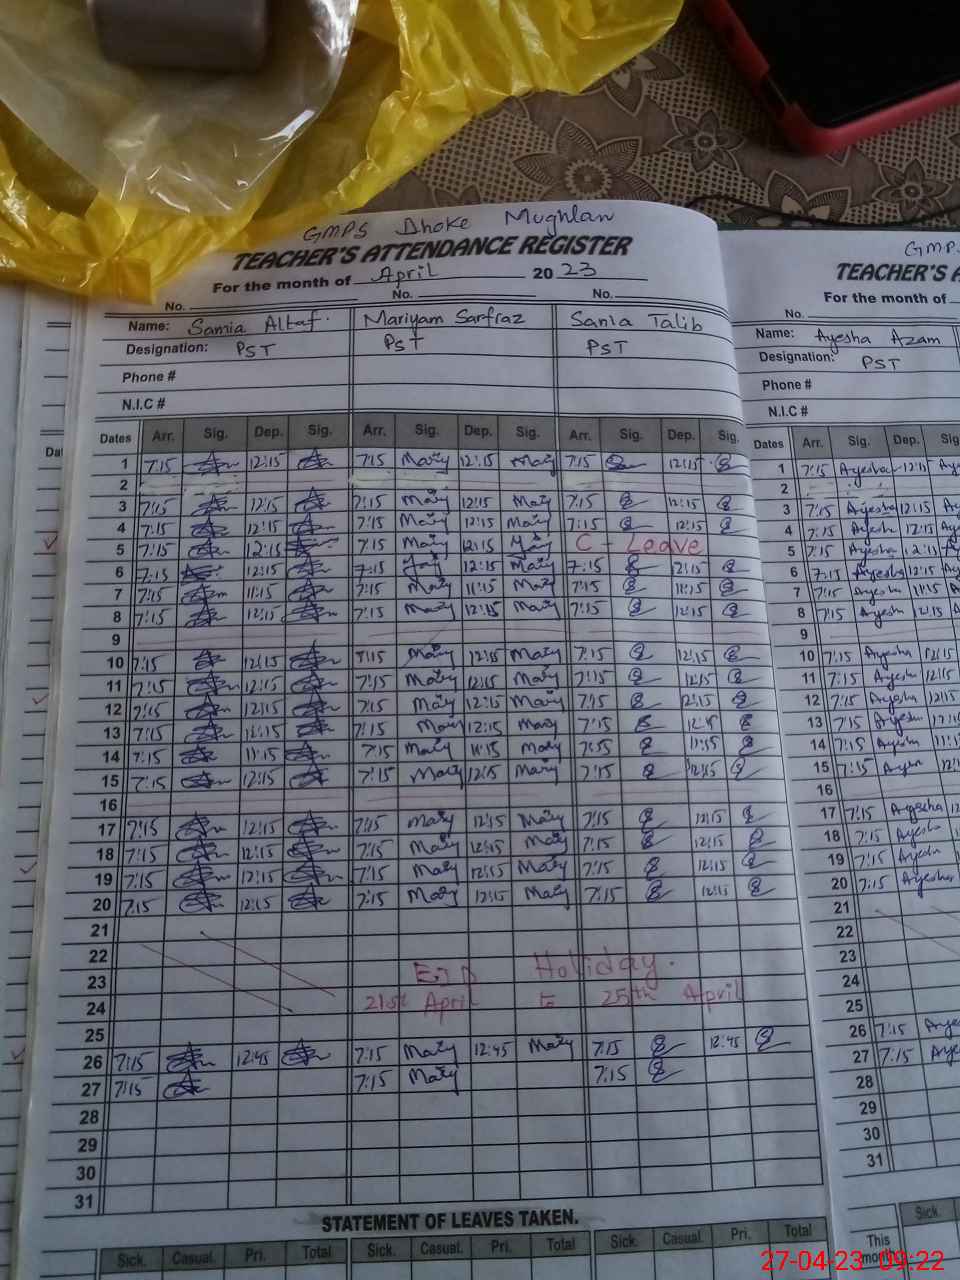 GMPS Dhoke Mughlan
TEACHER'S ATTENDANCE REGISTER
For the month of April 2023
No. No. No.
Name: Samia Altaf. Mariyam Sarfraz Sania Talib
Designation: PST PST PST
Phone #
N.I.C #
Dates Arr. Sig. Dep. Sig. Arr. Sig. Dep. Sig. Arr. Sig. Dep. Sig.
1 7:15 12:15 7:15 Mary 12:15 Mary 7:15 12:15
2
3 7:15 12:15 7:15 Mary 12:15 Mary 7:15 12:15
4 7:15 12:15 7:15 Mary 12:15 Mary 7:15 12:15
5 7:15 12:15 7:15 Mary 12:15 C - Leave
6 7:15 12:15 7:15 12:15 Mary 7:15
7 7:15 11:15 7:15 Mary 11:15 Mary 7:15 11:15
8 7:15 12:15 7:15 Mary 12:15 Mary 7:15 12:15
9
10 7:15 12:15 Mary 12:15 Mary 7:15 12:15
11 7:15 12:15 7:15 Mary 12:15 Mary 7:15 12:15
12 7:15 12:15 7:15 Mary 12:15 Mary 7:15 12:15
13 7:15 7:15 Mary 12:15 Mary 7:15
14 7:15 11:15 7:15 Mary 11:15 Mary
15 7:15 12:15 7:15 Mary 12:15 Mary 7:15 12:15
16
17 7:15 12:15 7:15 Mary 12:15 Mary 7:15 12:15
18 7:15 12:15 7:15 Mary 12:15 Mary 7:15 12:15
19 7:15 12:15 7:15 Mary 12:15 Mary 7:15 12:15
20 7:15 12:15 7:15 Mary 12:15 Mary 7:15 12:15
21
22
23 EID Holiday.
24 21st April to 25th April
25
26 7:15 12:45 7:15 Mary 12:45 Mary 7:15 12:45
27 7:15 7:15 Mary 7:15
28
29
30
31
STATEMENT OF LEAVES TAKEN.
Sick. Casual. Pri. Total Sick. Casual. Pri. Total Sick. Casual. Pri. Total
GMP
TEACHER'S A
For the month of
No.
Name: Ayesha Azam
Designation: PST
Phone #
N.I.C #
Dates Arr. Sig. Dep. Sig
1 7:15 Ayesha 12:15
2
3 7:15 Ayesha 12:15
4 7:15 Ayesha 12:15
5 7:15 Ayesha 12:15
6 7:15 Ayesha 12:15
7 7:15 Ayesha 11:15
8 7:15 Ayesha 12:15
9
10 7:15 Ayesha 12:15
11 7:15 Ayesha 12:15
12 7:15 Ayesha 12:15
13 7:15 Ayesha
14 7:15 Ayesha
15 7:15
16
17 7:15 Ayesha
18 7:15 Ayesha
19 7:15 Ayesha
20 7:15 Ayesha
21
22
23
24
25
26 7:15
27 7:15
28
29
30
31
Sick.
This
month
27-04-23 09:22